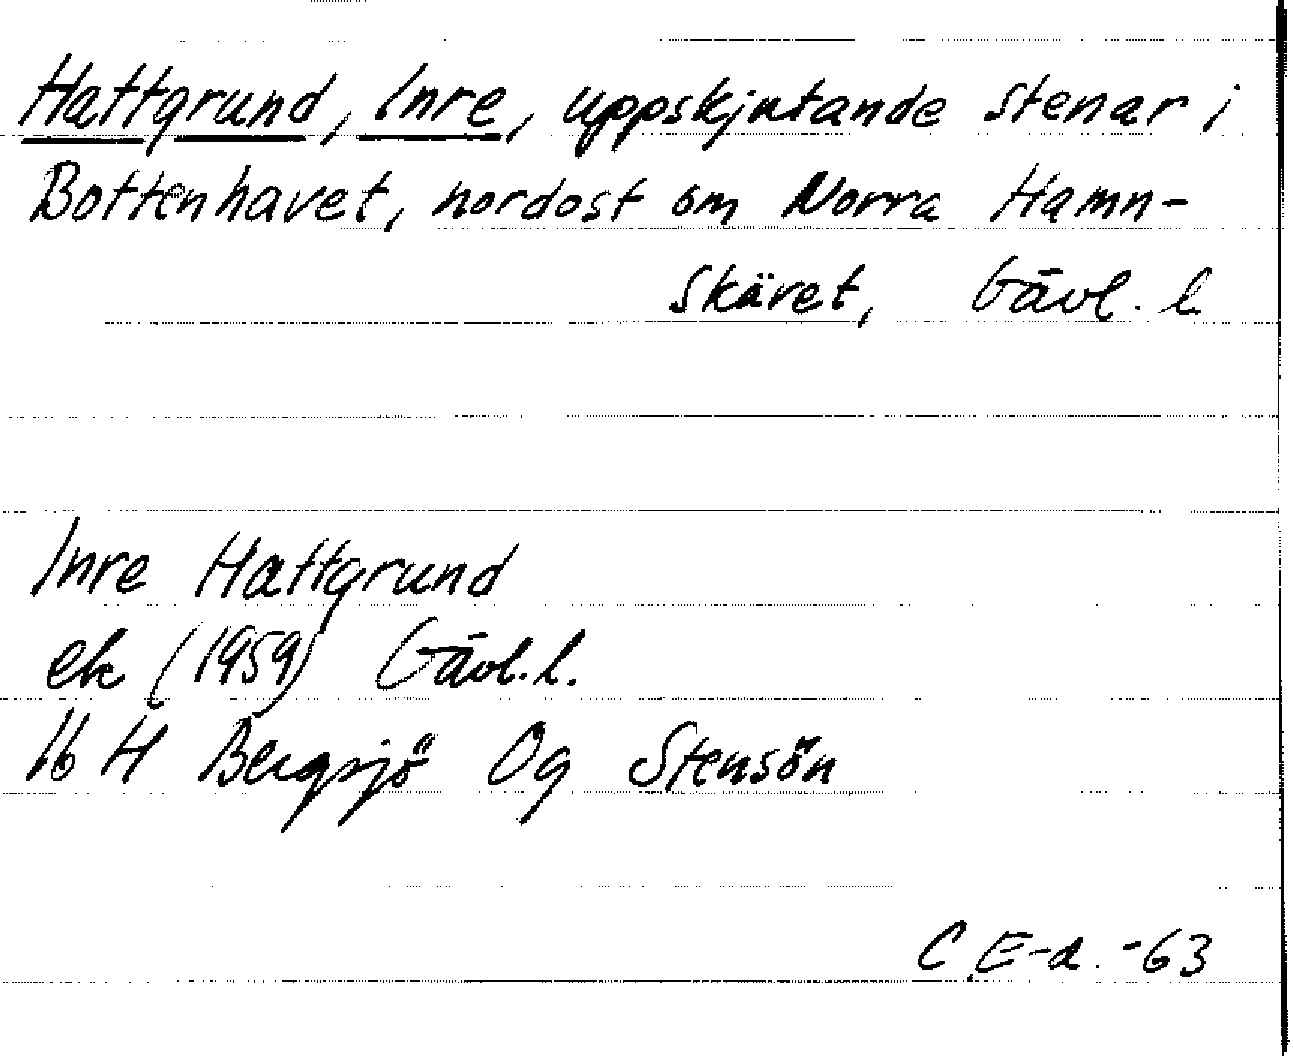 Hattgrund, Inre, uppskjutande stenar i
Bottenhavet, nordost om Norra Hamn-
skäret, Gävl. l.
Inre Hattgrund
ek (1959) Gävl. l.
16 H Bergsjö Og Stensön
C.E-d. -63